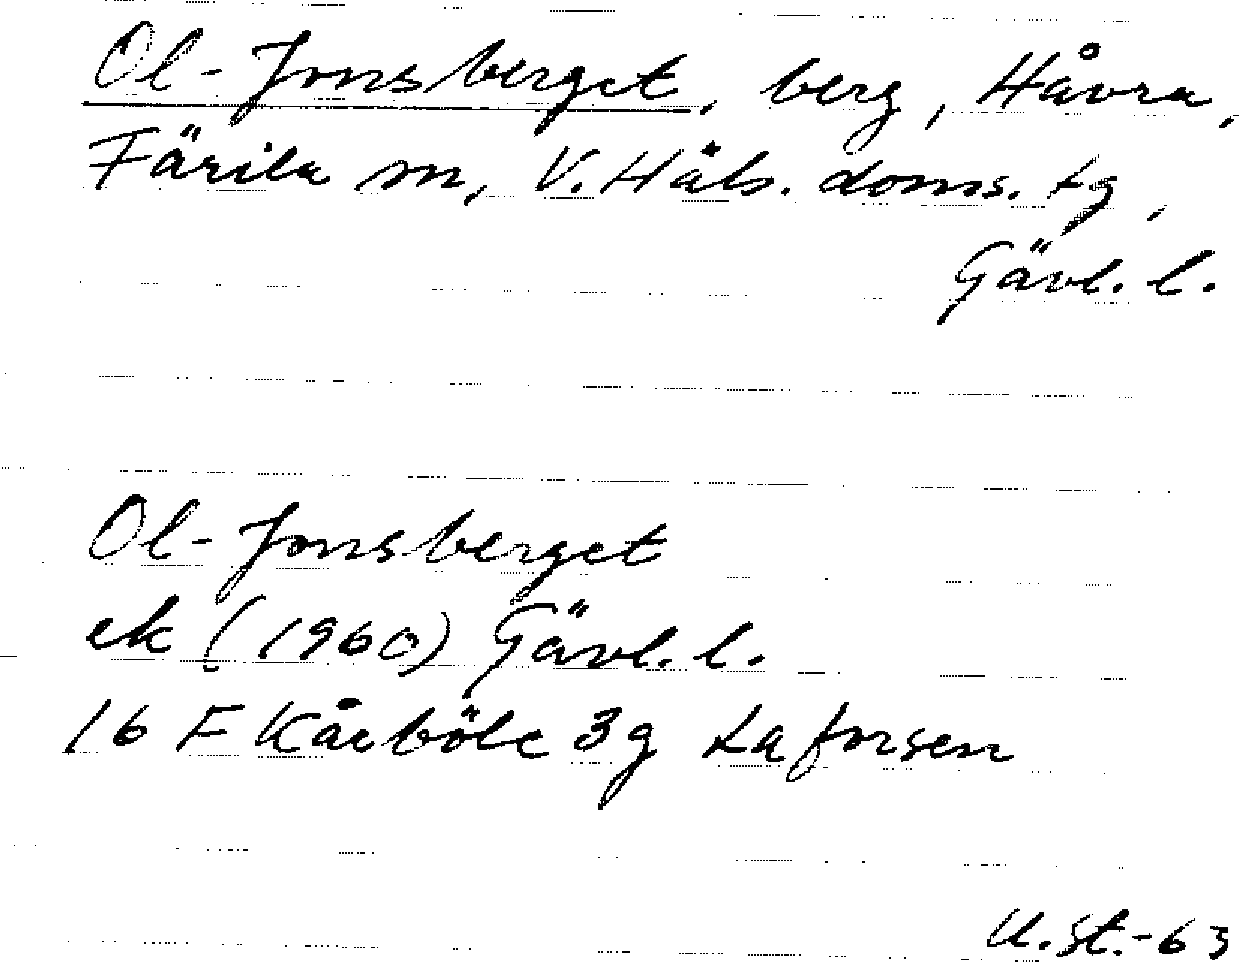 Ol-Jonsberget, berg, Håvra,
Färila sn, V. Häls. doms. tg,
Gävl. l.
Ol-Jonsberget
ek (1960) Gävl. l.
16 F Kårböle 3g Laforsen
U. St. -63